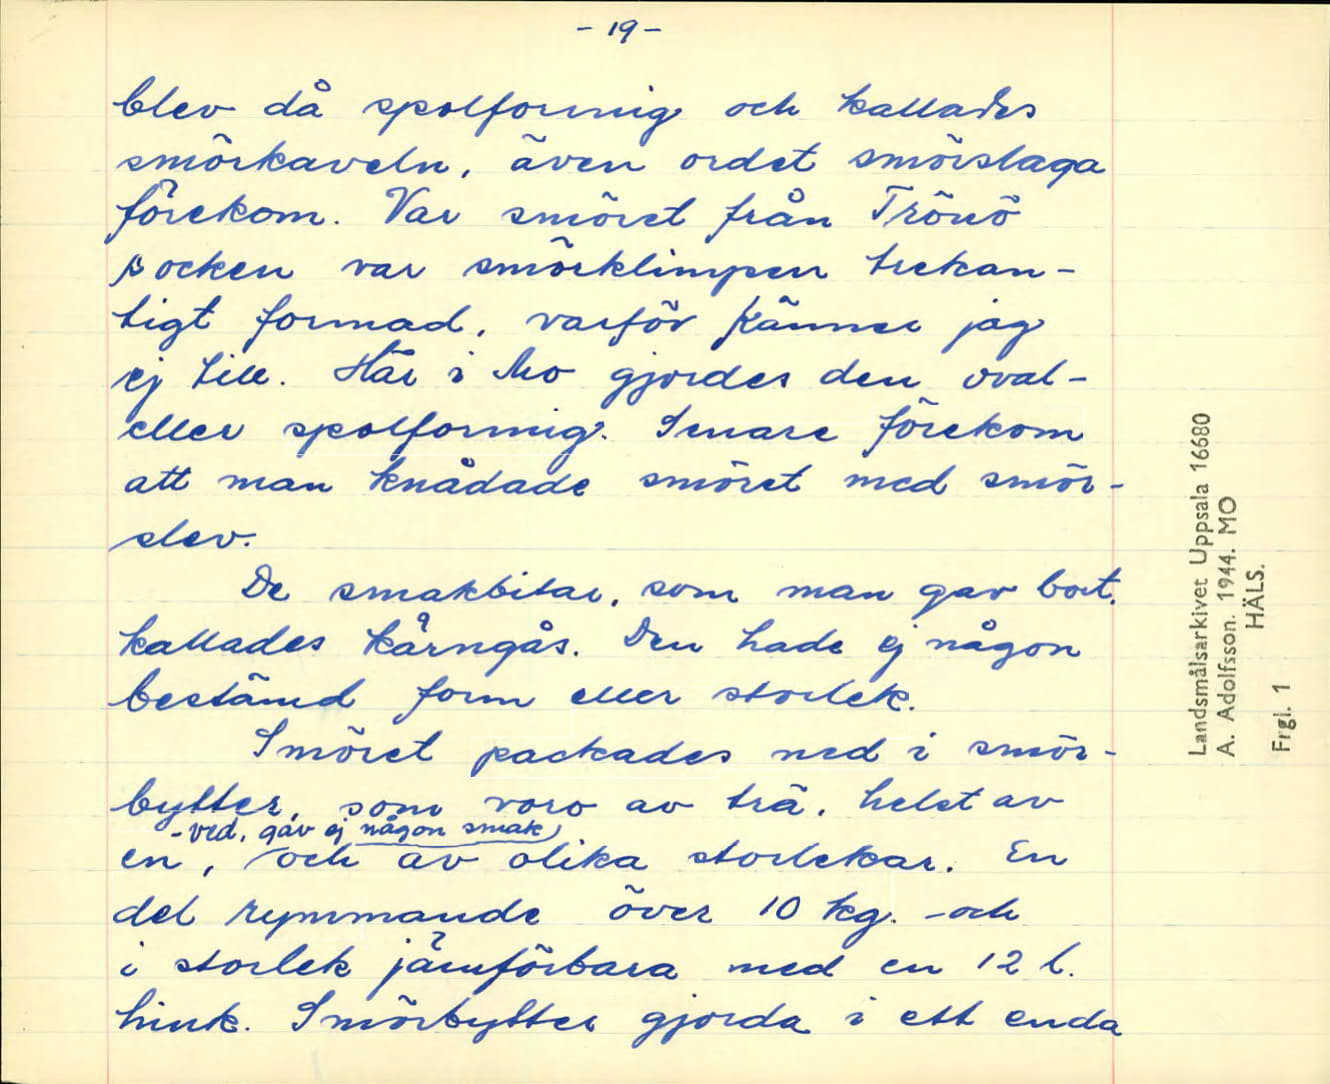 - 19 -
blev då spolformig och kallades
smörkaveln, även ordet smörslaga
förekom. Var smöret från Trönö
socken var smörklimpen trekan-
tigt formad, varför känner jag
ej till. Här i Mo gjordes den oval-
eller spolformig. Senare förekom
att man knådade smöret med smör-
slev.
De smakbitar, som man gav bort,
kallades kärngås. Den hade ej någon
bestämd form eller storlek.
Smöret packades ned i smör-
bytter, som voro av trä, helst av
-ved, gav ej någon smak,
en, och av olika storlekar. En
del rymmande över 10 kg. -och
i storlek jämförbara med en 12 l.
hink. Smörbytter gjorda i ett enda
Landsmålsarkivet Uppsala 16680
A. Adolfsson. 1944. MO
HÄLS.
Frgl. 1